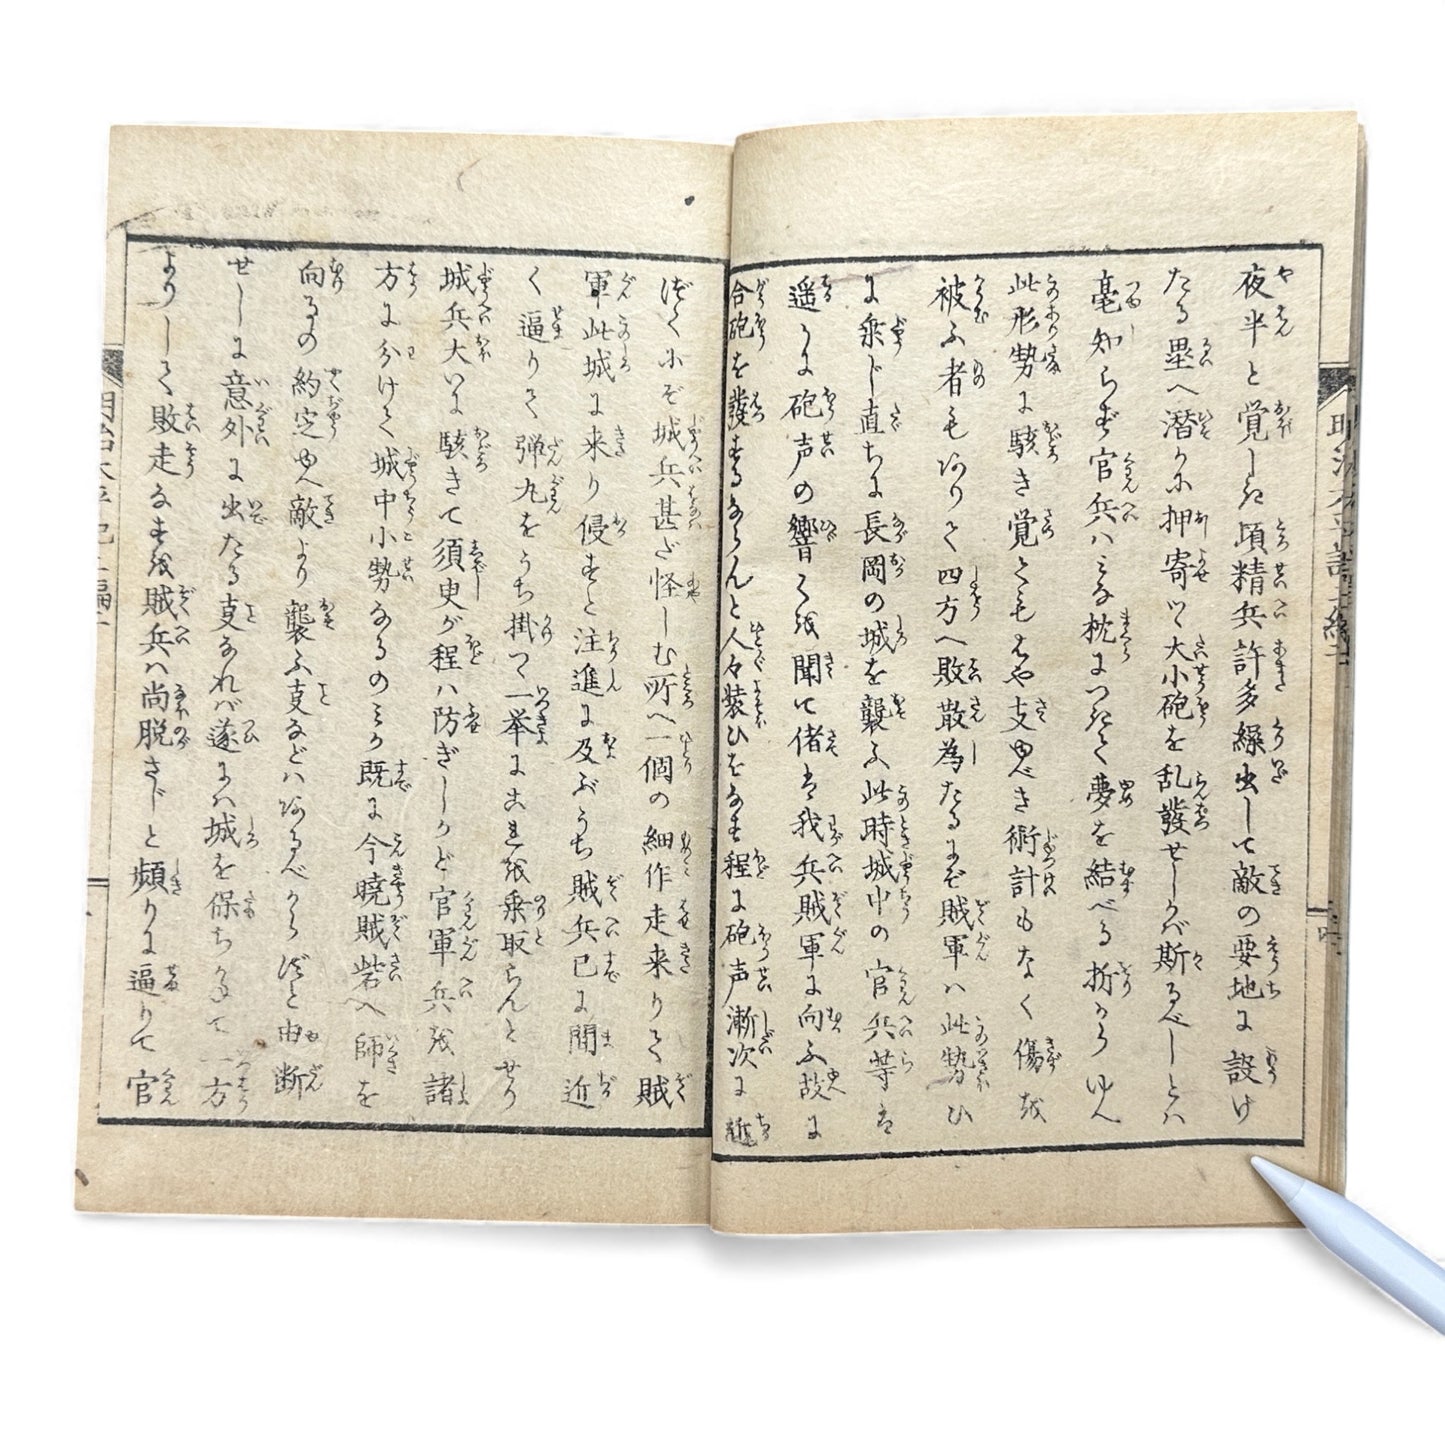 夜半と覚しき頃精兵許多繰出して敵の要地に設け
たる塁へ潜かに押寄せ大小砲を乱發せしかバ斯るべしとハ
毫知らず官兵ハみな枕につきて夢を結べる折から ゆへ
此形勢に駭き覚くともはや支ゆべき術計もなく傷を
被ふ者もありて四方へ敗散為たるにぞ賊軍ハ此勢ひ
に乗じ直ちに長岡の城を襲ふ此時城中の官兵等は
遥かに砲声の響くを聞て偖は我兵賊軍に向ふ故に
合砲を發するならんと人々装ひをなす程に砲声漸次に近
づくにぞ城兵甚だ怪しむ所へ一個の細作走来りて賊
軍此城に来り侵すと注進に及ぶうち賊兵已に間近
く逼りて弾丸をうち掛て一挙にこれを乗取らんとせり
城兵大いに駭きて須臾が程ハ防ぎしかど官軍兵を諸
方に分けて城中小勢なるのミか既に今暁賊砦へ師を
向るの約定ゆへ敵より襲ふ事などハあるべからずと由断
せしに意外に出たる事なれバ遂にハ城を保ちかねて一方
よりして敗走なすを賊兵ハ尚脱さじと頻りに逼りて官
明治太平記十編二
明治太平記十編二